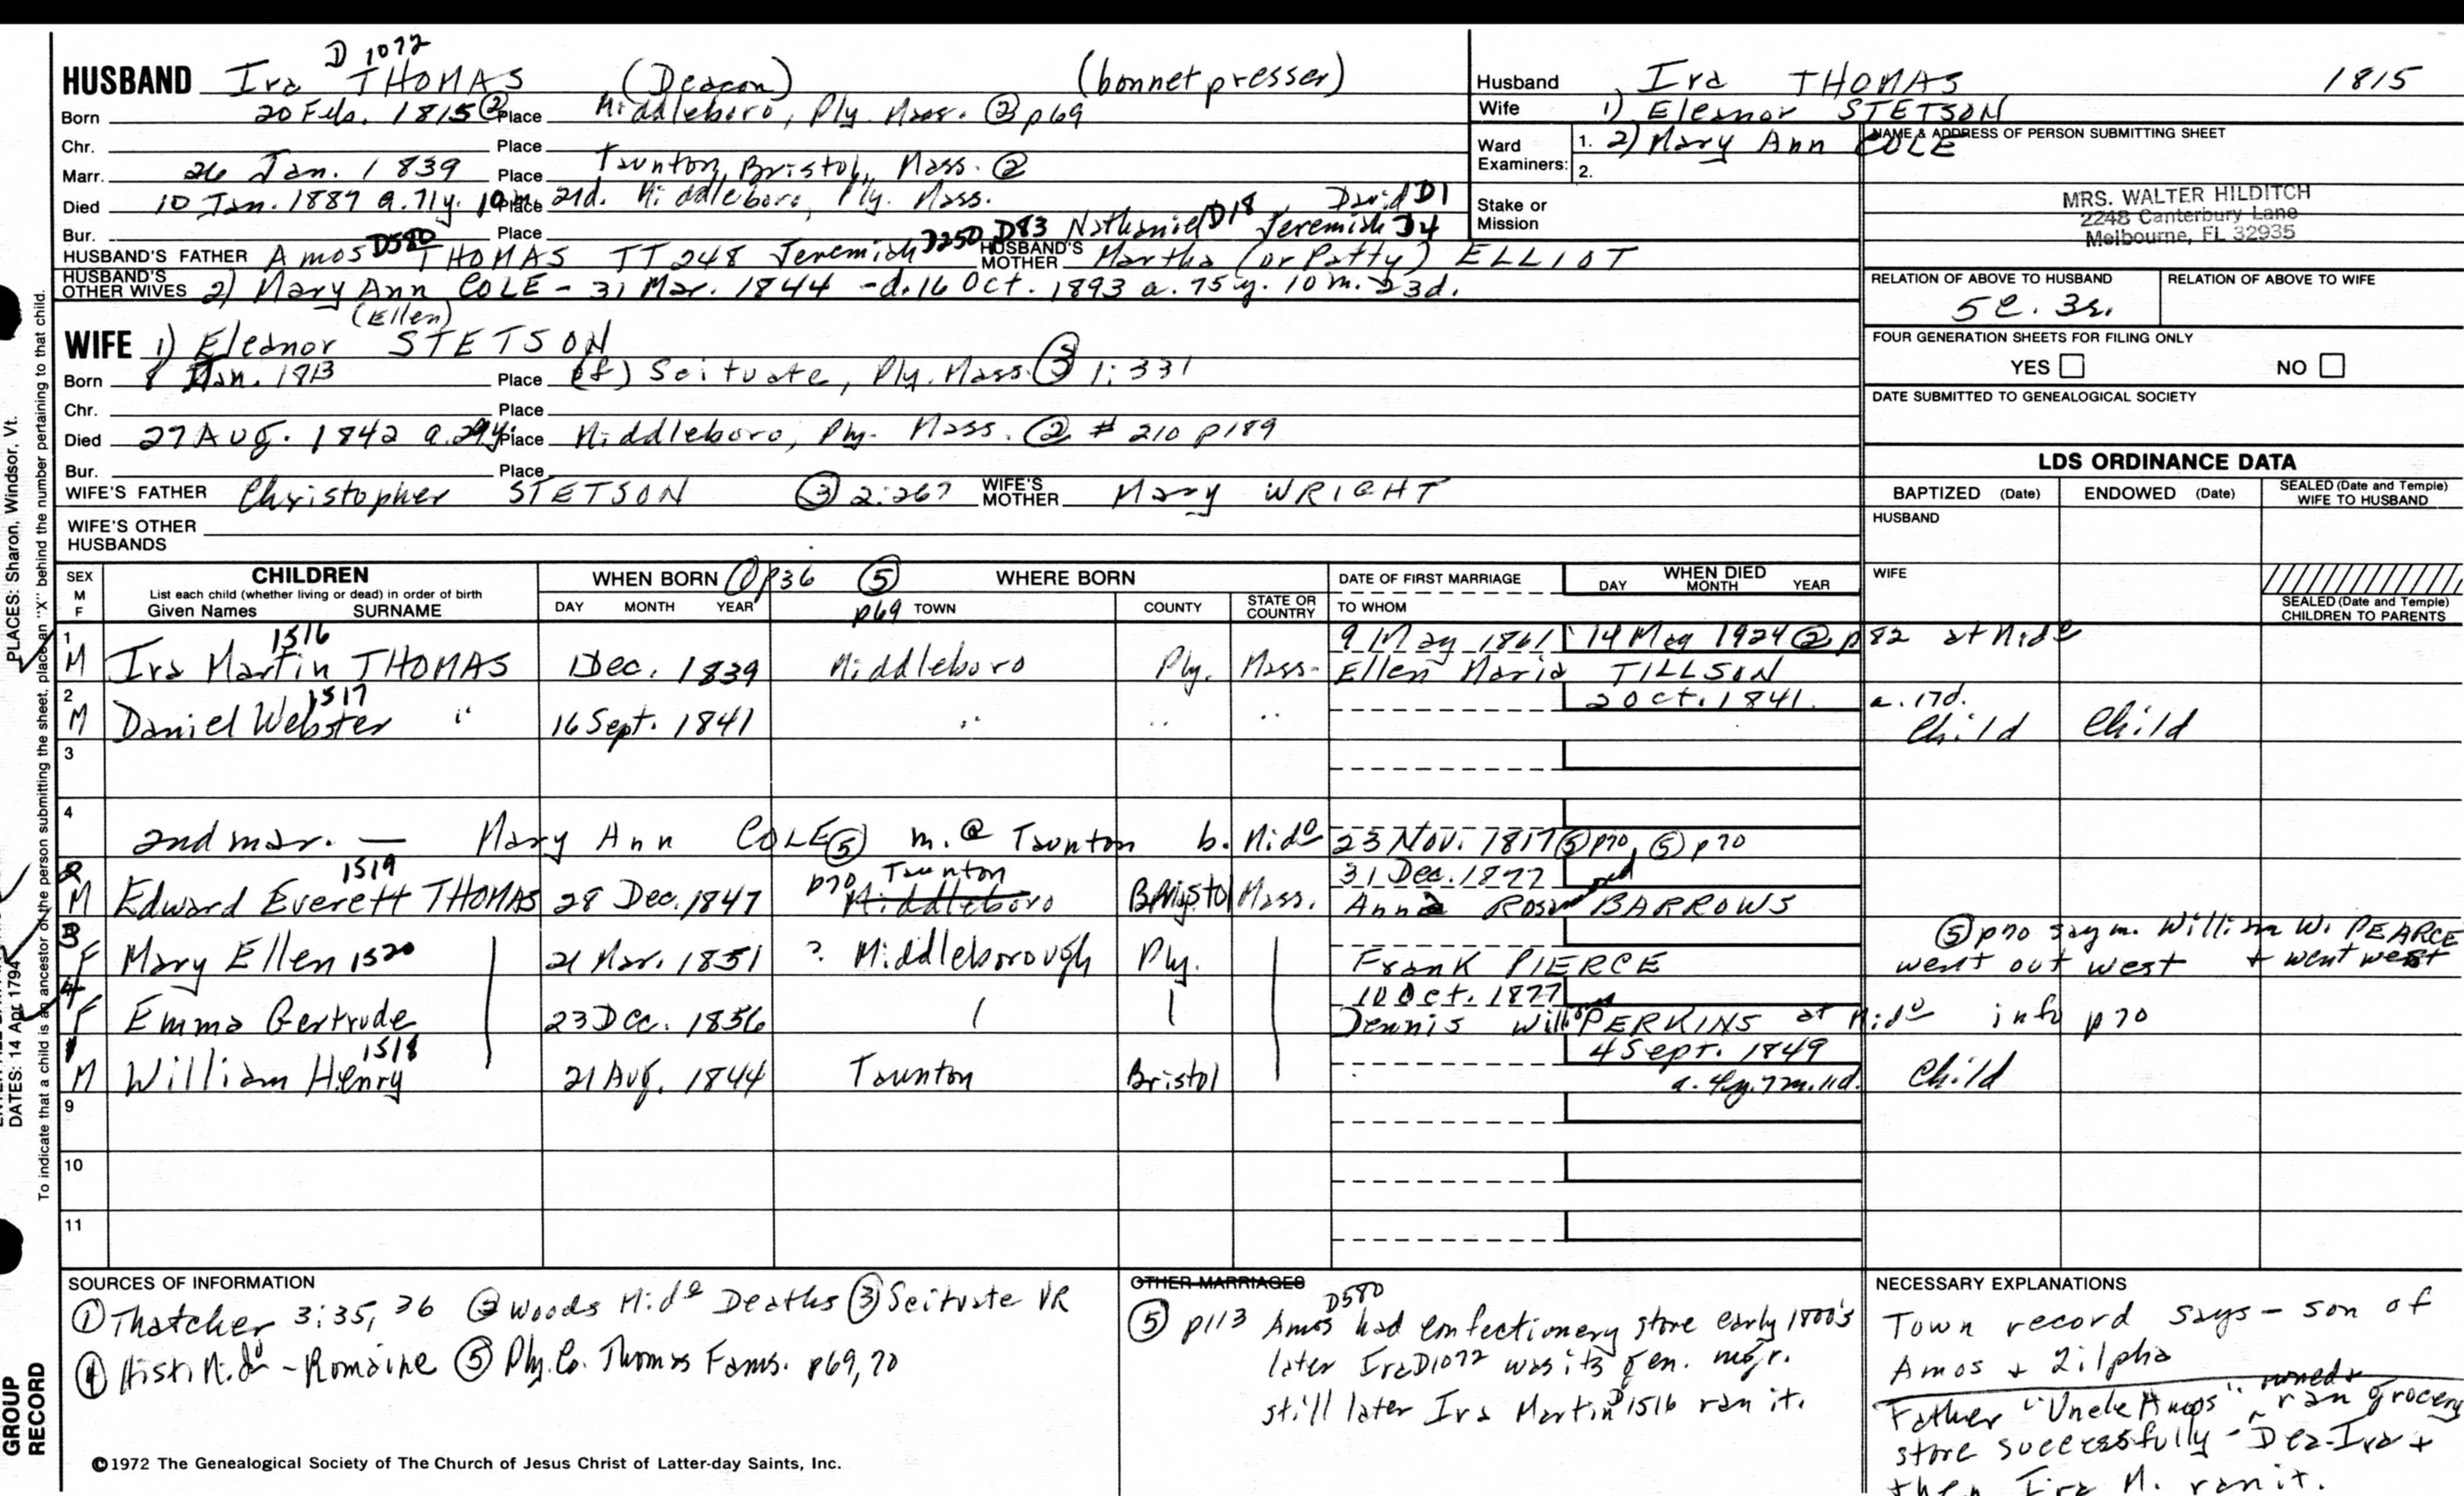 D 1072
HUSBAND Ira THOMAS (Deacon) (bonnet presser)
Born 20 Feb. 1815 ② Place Middleboro, Ply. Mass. ② p69
Chr. Place
Marr. 26 Jan. 1839 Place Taunton, Bristol, Mass. ②
Died 10 Jan. 1887 a. 71y. 10m. 21d. Place Middleboro, Ply. Mass.
Bur. Place
D580 D250 D83 Nathaniel D18 Jeremiah D4 David D1
HUSBAND'S FATHER Amos THOMAS TT 248 Jeremiah HUSBAND'S MOTHER Martha (or Patty) ELLIOT
HUSBAND'S OTHER WIVES 2) Mary Ann COLE - 31 Mar. 1844 - d. 16 Oct. 1893 a. 75y. 10m. 23d.
(Ellen)
WIFE 1) Eleanor STETSON
Born 8 Jan. 1813 Place (of) Scituate, Ply. Mass. ③ 1:331
Chr. Place
Died 27 Aug. 1842 a. 29y. Place Middleboro, Ply. Mass. ② # 210 p189
Bur. Place
WIFE'S FATHER Christopher STETSON ③ 2:267 WIFE'S MOTHER Mary WRIGHT
WIFE'S OTHER HUSBANDS
Husband Ira THOMAS 1815
Wife 1) Eleanor STETSON
Ward Examiners: 1. 2) Mary Ann COLE
2.
Stake or Mission
NAME & ADDRESS OF PERSON SUBMITTING SHEET
MRS. WALTER HILDITCH
2248 Canterbury Lane
Melbourne, FL 32935
RELATION OF ABOVE TO HUSBAND RELATION OF ABOVE TO WIFE
5c. 3r.
FOUR GENERATION SHEETS FOR FILING ONLY
YES NO
DATE SUBMITTED TO GENEALOGICAL SOCIETY
LDS ORDINANCE DATA
BAPTIZED (Date) ENDOWED (Date) SEALED (Date and Temple) WIFE TO HUSBAND
HUSBAND
WIFE
SEALED (Date and Temple) CHILDREN TO PARENTS
SEX M F
CHILDREN
List each child (whether living or dead) in order of birth
Given Names SURNAME
WHEN BORN ① p36 ⑤ WHERE BORN
DAY MONTH YEAR p69 TOWN COUNTY STATE OR COUNTRY
DATE OF FIRST MARRIAGE
TO WHOM
WHEN DIED
DAY MONTH YEAR
1 1516 9 May 1861 14 May 1924 ② p82 at Mido
M Ira Martin THOMAS 1 Dec. 1839 Middleboro Ply. Mass. Ellen Maria TILLSON
2 1517 2 Oct. 1841 a. 17d.
M Daniel Webster " 16 Sept. 1841 " " " Child Child
3
4
2nd mar. — Mary Ann COLE ⑤ m. @ Taunton b. Mido 23 Nov. 1817 ⑤ p70, ⑤ p70
2 1519 p70 Taunton 31 Dec. 1877
M Edward Everett THOMAS 28 Dec. 1847 Middleboro Bristol Mass. Anna BARROWS
3 ⑤ p70 say m. William W. PEARCE
F Mary Ellen 1520 21 Mar. 1851 ? Middleborough Ply. Frank PIERCE went out west + went west
4 10 Oct. 1877
F Emma Gertrude 23 Dec. 1856 Dennis PERKINS at Mido info p70
1 1518 4 Sept. 1849
M William Henry 21 Aug. 1844 Taunton Bristol a. 4y. 7m. 11d. Child
9
10
11
SOURCES OF INFORMATION
① Thatcher 3:35, 36 ② Woods Mido Deaths ③ Scituate VR
④ Hist. Mido - Romaine ⑤ Ply. Co. Thomas Fams. p69, 70
©1972 The Genealogical Society of The Church of Jesus Christ of Latter-day Saints, Inc.
OTHER MARRIAGES
D580
⑤ p113 Amos had confectionery store early 1800's
later Ira D1072 was its gen. mgr.
still later Ira Martin D1516 ran it.
NECESSARY EXPLANATIONS
Town record says - son of
Amos + Zilpha
Father "Uncle Amos" owned + ran grocery
store successfully - Dea. Ira +
then Ira M. ran it.
PLACES: Sharon, Windsor, Vt.
DATES: 14 Apr 1794
To indicate that a child is an ancestor of the person submitting the sheet, place an "X" behind the number pertaining to that child.
GROUP
RECORD